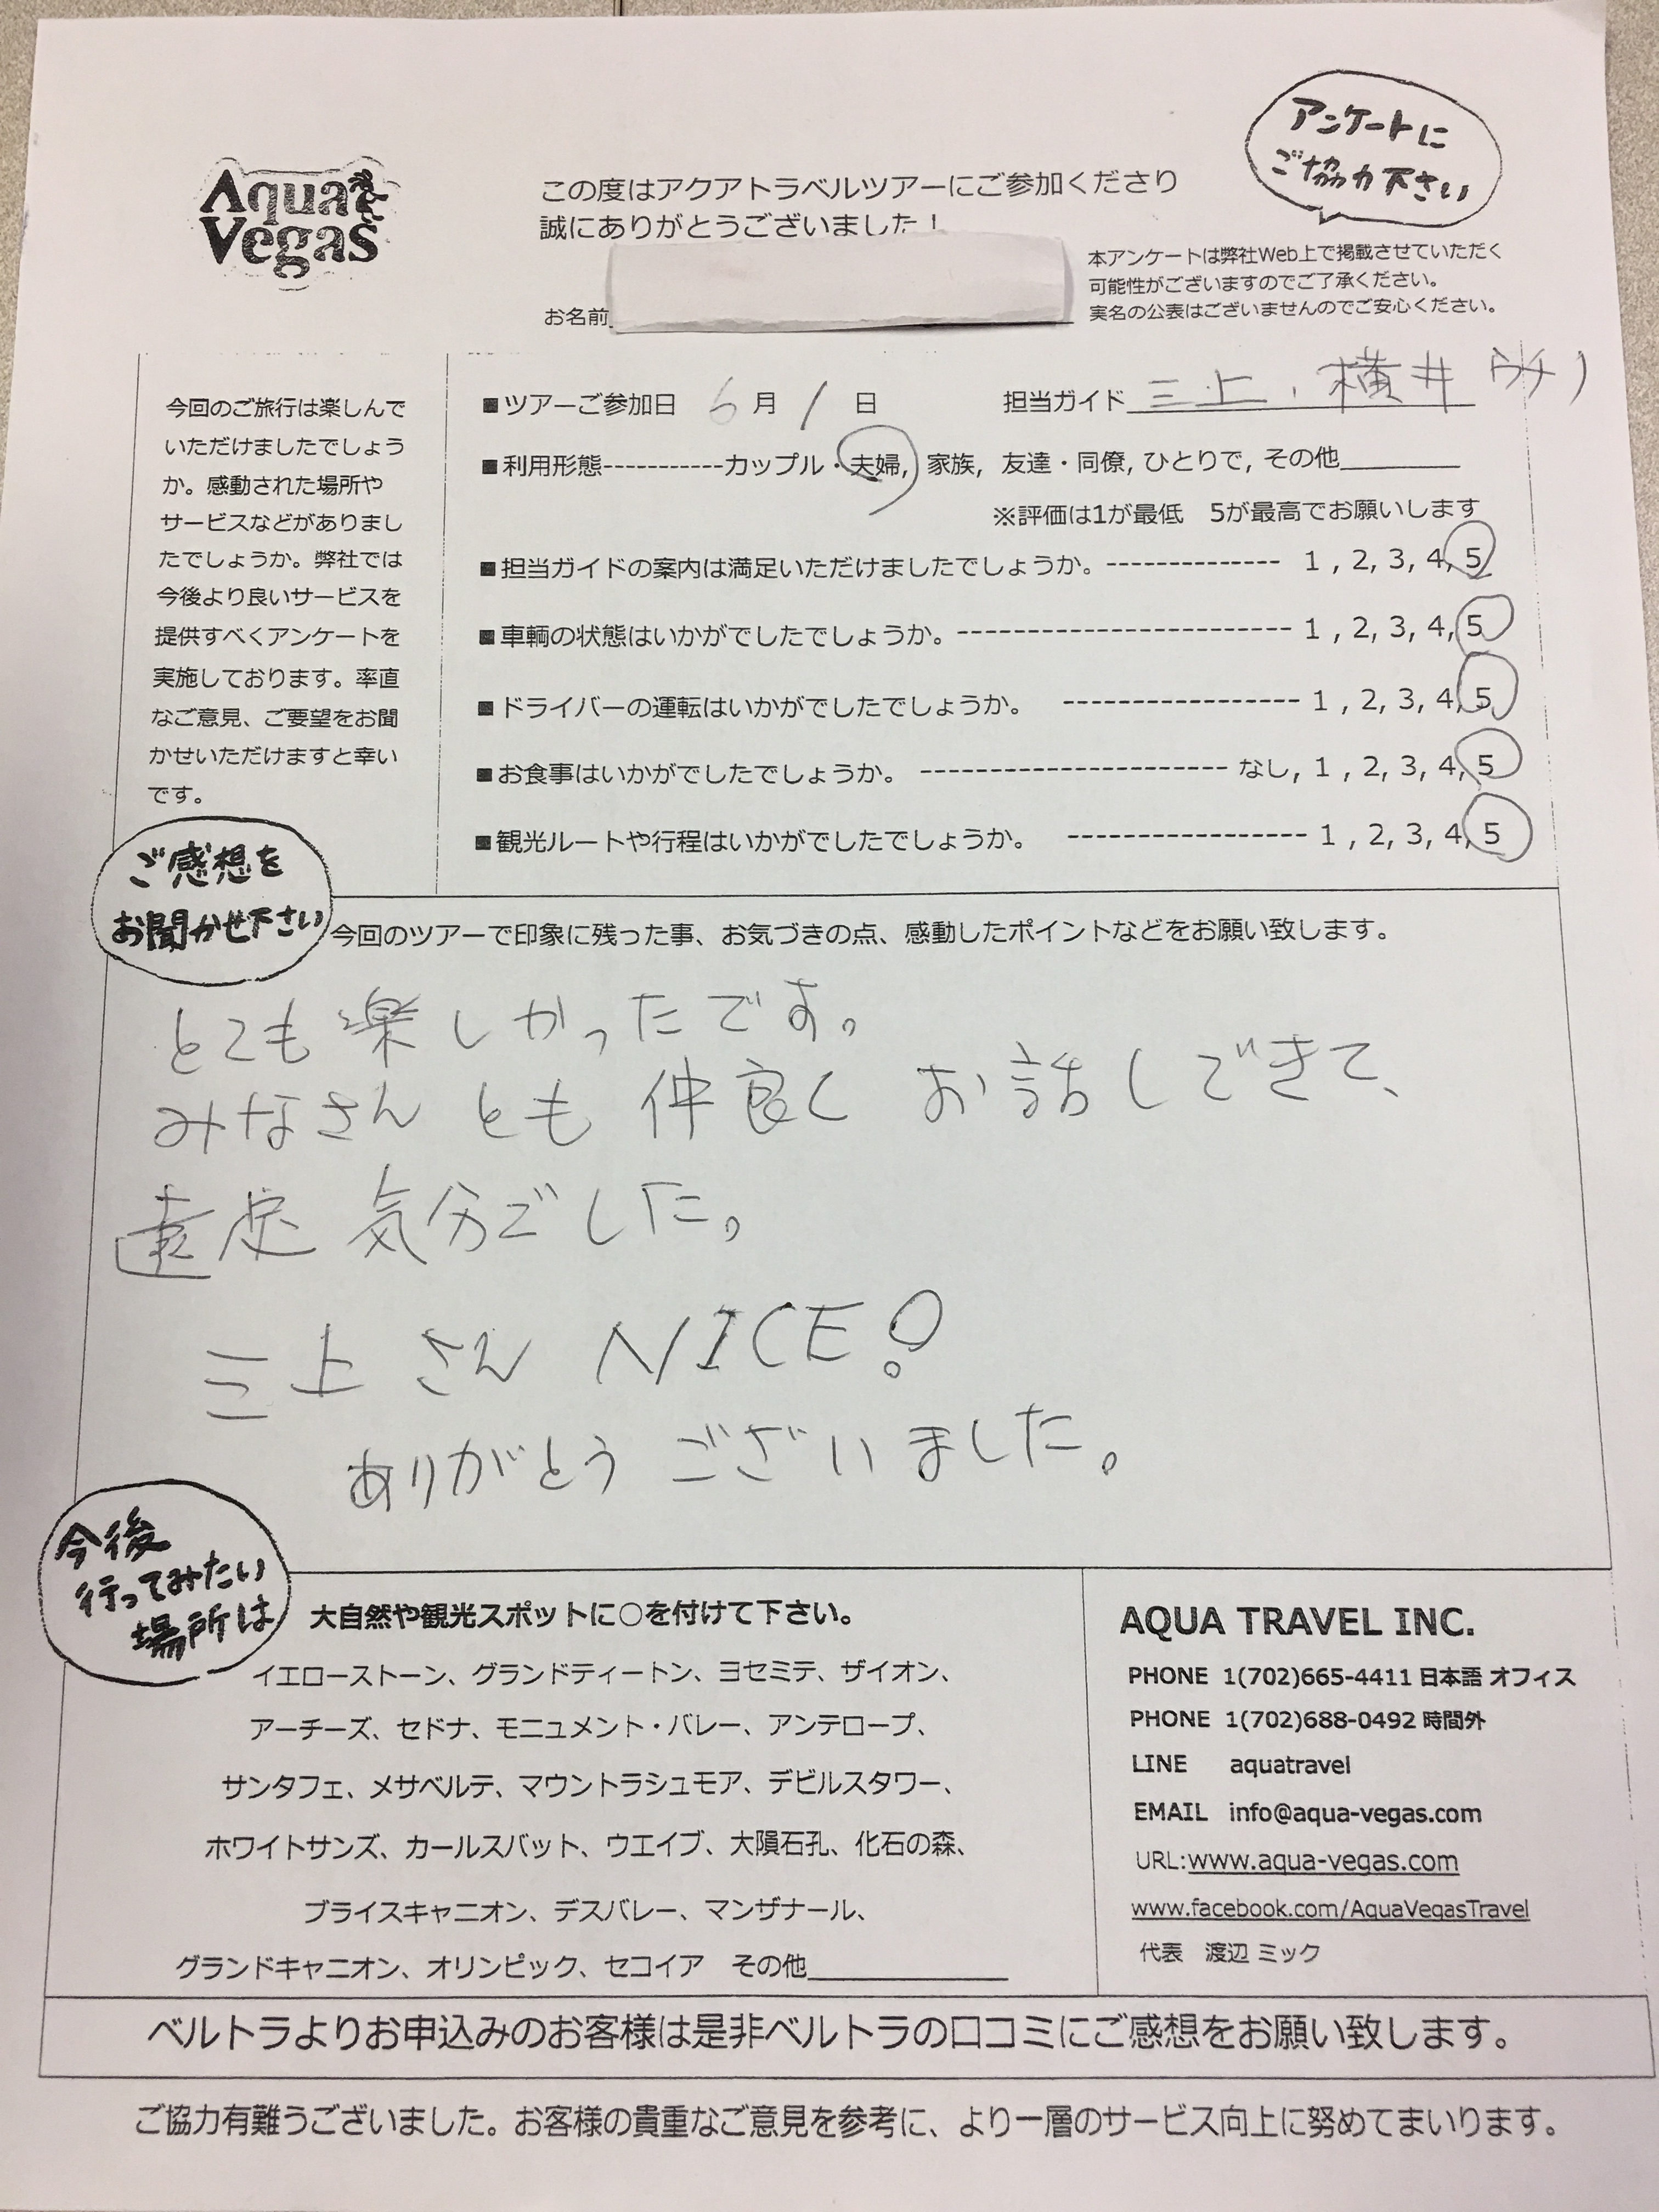 アンケートに
ご協力下さい
Aqua
Vegas
この度はアクアトラベルツアーにご参加くださり
誠にありがとうございました！
お名前
本アンケートは弊社Web上で掲載させていただく
可能性がございますのでご了承ください。
実名の公表はございませんのでご安心ください。
今回のご旅行は楽しんで
いただけましたでしょう
か。感動された場所や
サービスなどがありまし
たでしょうか。弊社では
今後より良いサービスを
提供すべくアンケートを
実施しております。率直
なご意見、ご要望をお聞
かせいただけますと幸い
です。
■ツアーご参加日 6月1日 担当ガイド 三上、横井
■利用形態-----------カップル・夫婦, 家族, 友達・同僚, ひとりで, その他
※評価は1が最低 5が最高でお願いします
■担当ガイドの案内は満足いただけましたでしょうか。-------------- 1 , 2, 3, 4, 5
■車輌の状態はいかがでしたでしょうか。----------------------- 1 , 2, 3, 4, 5
■ドライバーの運転はいかがでしたでしょうか。 ----------------- 1 , 2, 3, 4, 5
■お食事はいかがでしたでしょうか。 ---------------------- なし, 1 , 2, 3, 4, 5
■観光ルートや行程はいかがでしたでしょうか。 ----------------- 1 , 2, 3, 4, 5
ご感想を
お聞かせ下さい
今回のツアーで印象に残った事、お気づきの点、感動したポイントなどをお願い致します。
とても楽しかったです。
みなさんとも仲良くお話しできて、
遠足気分でした。
三上さん NICE!
ありがとうございました。
今後
行ってみたい
場所は
大自然や観光スポットに○を付けて下さい。
イエローストーン、グランドティートン、ヨセミテ、ザイオン、
アーチーズ、セドナ、モニュメント・バレー、アンテロープ、
サンタフェ、メサベルテ、マウントラシュモア、デビルスタワー、
ホワイトサンズ、カールスバット、ウエイブ、大隕石孔、化石の森、
ブライスキャニオン、デスバレー、マンザナール、
グランドキャニオン、オリンピック、セコイア その他
AQUA TRAVEL INC.
PHONE 1(702)665-4411 日本語 オフィス
PHONE 1(702)688-0492 時間外
LINE aquatravel
EMAIL info@aqua-vegas.com
URL:www.aqua-vegas.com
www.facebook.com/AquaVegasTravel
代表 渡辺 ミック
ベルトラよりお申込みのお客様は是非ベルトラの口コミにご感想をお願い致します。
ご協力有難うございました。お客様の貴重なご意見を参考に、より一層のサービス向上に努めてまいります。